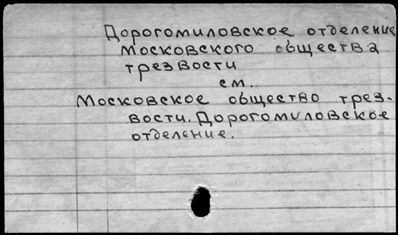 Дорогомиловское отделение
Московского общества
трезвости
см.
Московское общество трез-
вости. Дорогомиловское
отделение.